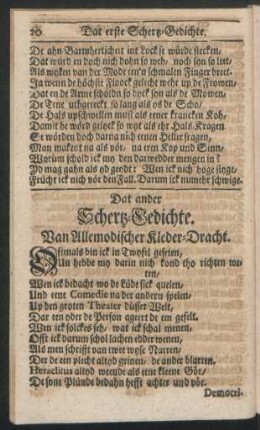 20 Dat erste Schertz-Gedichte.
De ahn Barmherticheit int Lock se würde stecken,
Dat würd en doch nich dohn so weh, noch syn so lett,
Als wyken van der Mode een'n schmalen Finger breet.
Ja wenn de höchste Floock gelecht weht up de Frowen,
Dat en de Arme scholdn so hoch syn als de Mowen,
De Tene uthgereckt so lang als os de Scho/
De Hals upschwellen must als eener krancken Koh,
Damit he würd gelyck so wyt als ehr Hals-Kragen
Se würden doch darna nich eenen Heller fragen,
Man makert na als vör, na eren Kop und Sinn,
Worüm schold ick my den darwedder mengen in?
Jd mag gahn als yd geyht: Wen ick nich hoge stygt,
Frücht ick nich vör den Fall. Darum ick numehr schwige.
Dat ander
Schertz-Gedichte.
Van Allemodischer Kleder-Dracht.
Oftmals bin ick in Twyfel geseten,
Un hebbe my darin nich kond tho richten weten,
Wen ick bedacht wo de Lüde sick quelen,
Und eene Comedie na der andern spelen
Up den groten Theater düsser Welt,
Dar een eder de Person ageert de em gefelt.
Wen ick solckes seh, wat ick schal menen,
Offt ick darum schol lachen edder wenen,
Als men schrifft van twee wyse Narren,
Der de een plecht altyd grinen, de ander blarren.
Heraclitus altyd weende als eene kleene Gör,
De sone Plünde bedahn hefft achter und vör.
Democri-